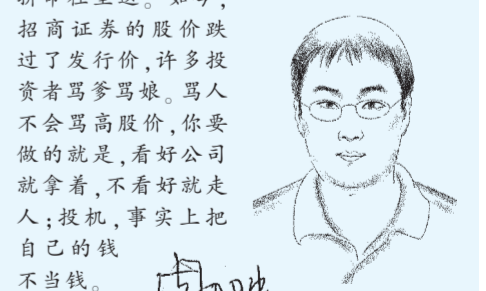 招商证券的股价跌
过了发行价,许多投
资者骂爹骂娘。骂人
不会骂高股价,你要
做的就是,看好公司
就拿着,不看好就走
人;投机,事实上把
自己的钱
不当钱。